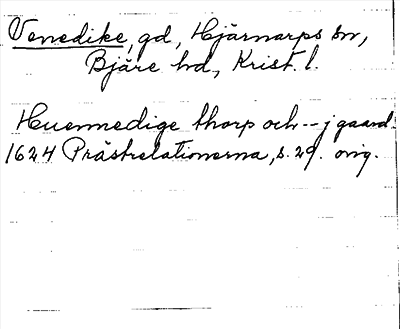 Venedike, gd, Hjärnarps sn,
Bjäre hd, Krist. l.
Huenmedige thorp och -- j gaard.
1624 Prästrelationerna, s. 29. orig.